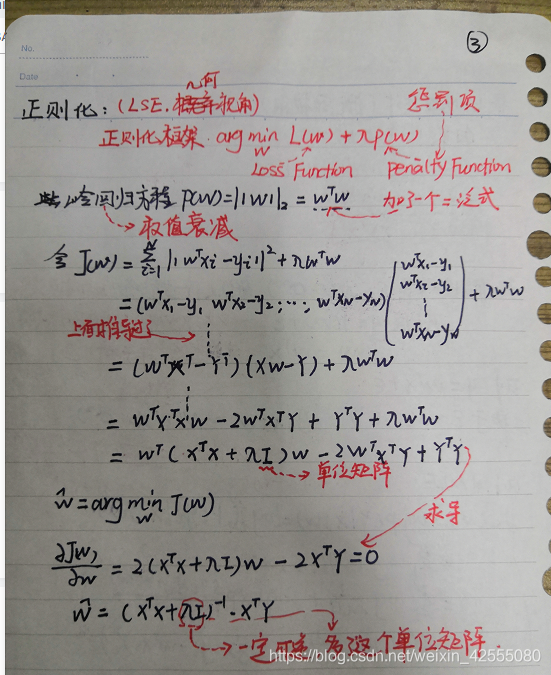 ③
No.
Date
几何
正则化: (LSE. 视角)
惩罚项
正则化框架. arg min L(w) + λP(w)
w
Loss Function penalty Function
岭回归方程 P(w) = ||w||₂ = wᵀw 加了一个二范式
权值衰减
令 J(w) = Σᵢ₌₁ᴺ ||wᵀxᵢ-yᵢ||² + λwᵀw
= (wᵀx₁-y₁, wᵀx₂-y₂, ..., wᵀx_N-y_N) (wᵀx₁-y₁ wᵀx₂-y₂ ⋮ wᵀx_N-y_N) + λwᵀw
上面推导过了
= (wᵀxᵀ-Yᵀ)(xw-Y) + λwᵀw
= wᵀxᵀxw - 2wᵀxᵀY + YᵀY + λwᵀw
= wᵀ(xᵀx + λI)w - 2wᵀxᵀY + YᵀY
单位矩阵
ŵ = arg min J(w)
w
求导
∂J(w)/∂w = 2(xᵀx+λI)w - 2xᵀY = 0
ŵ = (xᵀx+λI)⁻¹·xᵀY
一定可逆 多了这个单位矩阵.
https://blog.csdn.net/weixin_42555080